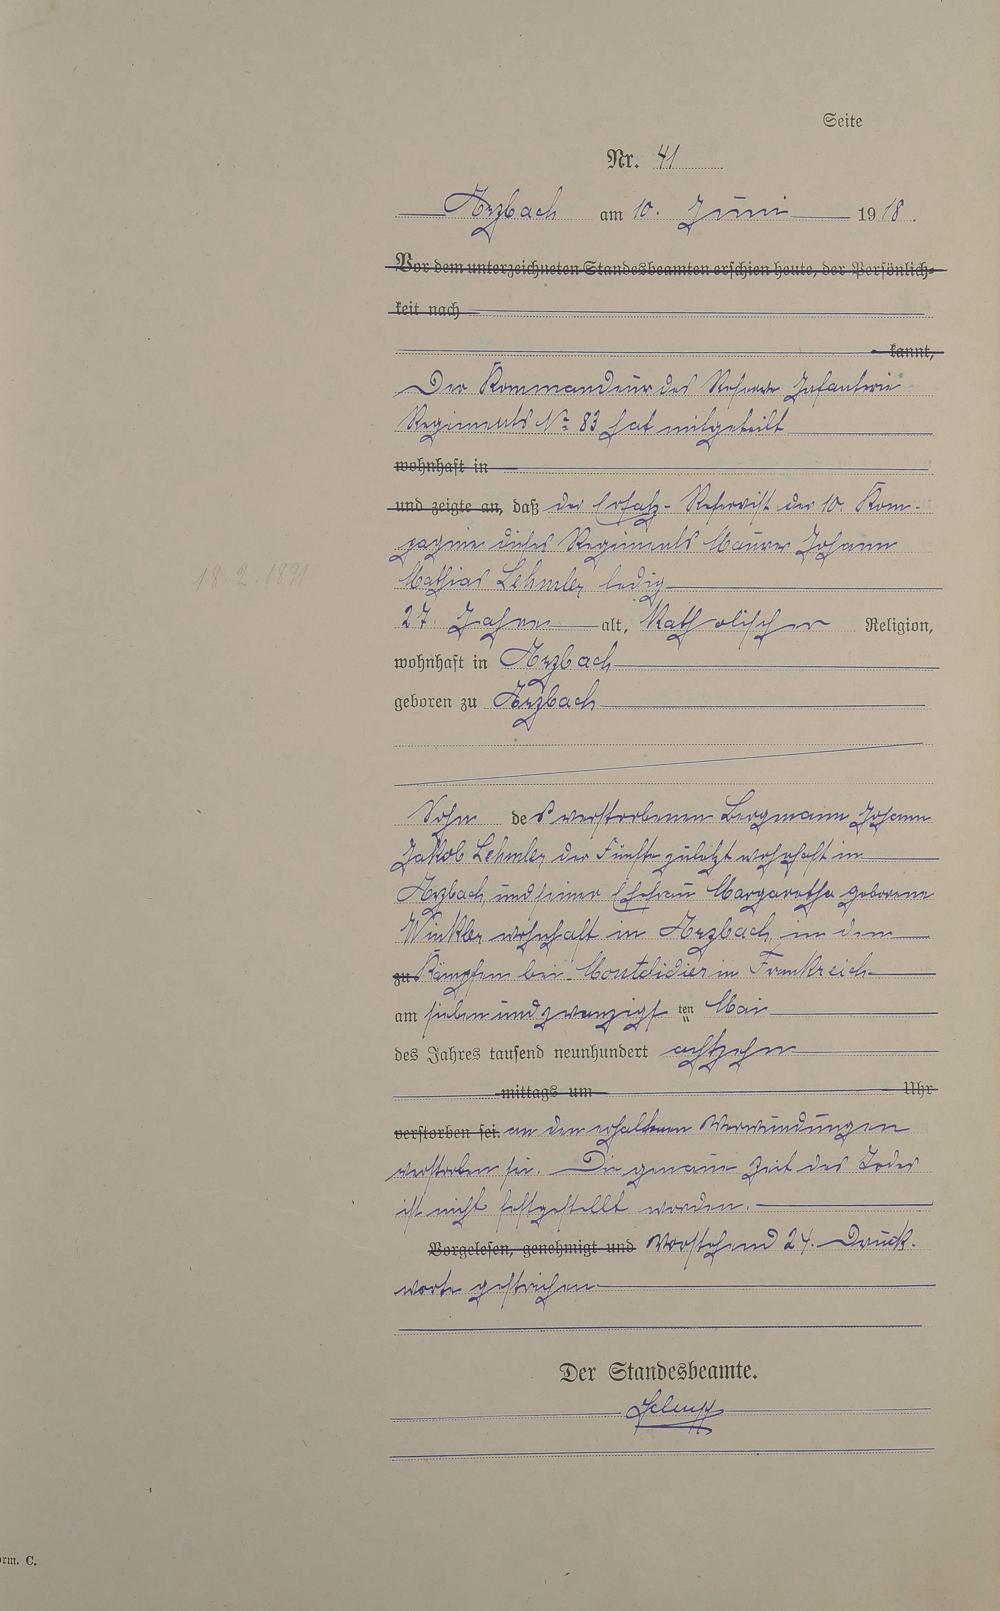 Seite
Nr. 41
Arzbach am 10. Juni 1918.
Vor dem unterzeichneten Standesbeamten erschien heute, der Persönlich-
keit nach
kannt,
Der Kommandeur des Reserve Infanterie
Regiments No 83 hat mitgeteilt
wohnhaft in
und zeigte an, daß der Ersatz-Reservist der 10. Kom-
pagnie dieses Regiments Maurer Johann
18.2.1891
Mathias Lehmler ledig
27 Jahre alt, Katholischer Religion,
wohnhaft in Arzbach
geboren zu Arzbach
Sohn des verstorbenen Bergmann Johann
Jakob Lehmler der Fünfte zuletzt wohnhaft in
Arzbach und seiner Ehefrau Margaretha geborene
Winkler wohnhaft in Arzbach, in den
zu Kämpfen bei Montdidier in Frankreich
am sieben und zwanzigs ten Mai
des Jahres tausend neunhundert achtzehn
mittags um Uhr
verstorben sei. an den erhaltenen Verwundungen
verstorben sei. Die genaue Zeit des Todes
ist nicht festgestellt worden.
Vorgelesen, genehmigt und Vorstehend 24. Druck-
worte gestrichen
Der Standesbeamte.
orm. C.